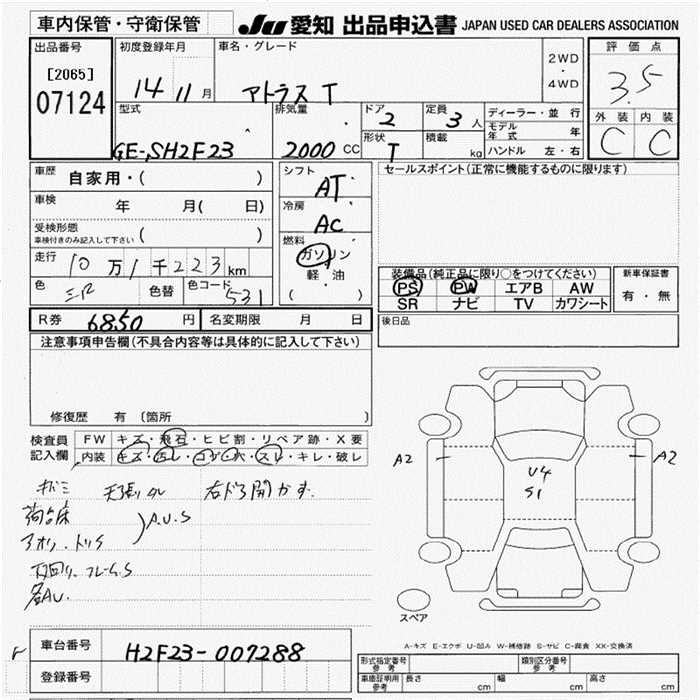 車内保管・守衛保管
JU 愛知 出品申込書 JAPAN USED CAR DEALERS ASSOCIATION
出品番号
[2065]
07124
初度登録年月
14 11月
車名・グレード
アトラス T
2WD
・
4WD
評価点
3.5
外装 内装
C C
型式
GE-SH2F23
排気量
2000 CC
ドア
2
形状
T
定員
3人
積載
kg
ディーラー・並行
モデル年式 年
ハンドル 左・右
車歴
自家用・( )
車検 年 月( 日)
受検形態
車検付きのみ記入して下さい ( )
走行 10万1千223km
色 色替 色コード 531
シフト
AT
冷房
AC
燃料
ガソリン
軽・油
( )
セールスポイント(正常に機能するものに限ります)
装備品(純正品に限り○をつけてください)
PS PW エアB AW
SR ナビ TV カワシート
新車保証書
有・無
R券 6850円 名変期限 月 日
後日品
注意事項申告欄(不具合内容等は具体的に記入して下さい)
修復歴 有 〔箇所 〕
検査員記入欄
FW キズ・飛石・ヒビ割・リペア跡・X要
内装 キズ・汚レ・コゲ・穴・スレ・キレ・破レ
右ドア開かず.
荷台床
アオリ.トリイ
A.U.S
A2
A2
U4
S1
スペア
A-キズ E-エクボ U-凹み W-補修跡 S-サビ C-腐食 XX-交換済
車台番号 H2F23-007288
登録番号
形式指定番号 参考
類別区分番号 参考
車庫証明用 参考 長さ cm 幅 cm 高さ cm